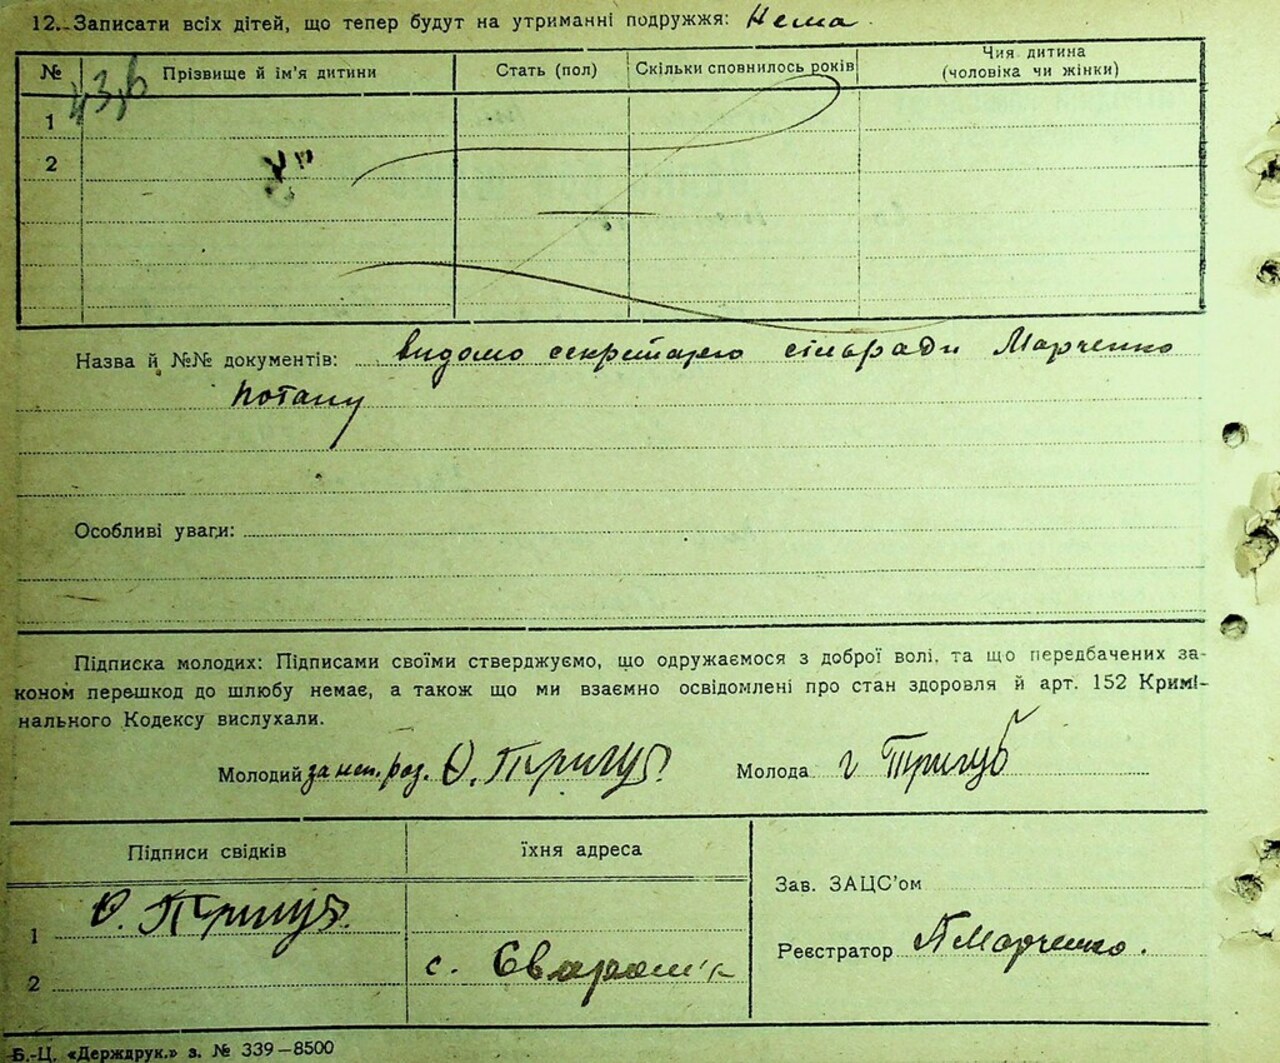 12. Записати всіх дітей, що тепер будут на утриманні подружжя: Нема.
№ Прізвище й ім'я дитини Стать (пол) Скільки сповнилось років Чия дитина (чоловіка чи жінки)
1
2
Назва й №№ документів: видомо секретарю сільради Марченко
Потапу
Особливі уваги:
Підписка молодих: Підписами своїми стверджуємо, що одружаємося з доброї волі, та що передбачених за-
коном перешкод до шлюбу немає, а також що ми взаємно освідомлені про стан здоровля й арт. 152 Кримі-
нального Кодексу вислухали.
Молодий за неп. роз. О. Тригуб. Молода Г Тригуб
Підписи свідків їхня адреса
Зав. ЗАЦС'ом
1 О. Тригуб.
Реєстратор П Марченко.
2 с.
Б.-Ц. «Держдрук.» з. № 339—8500